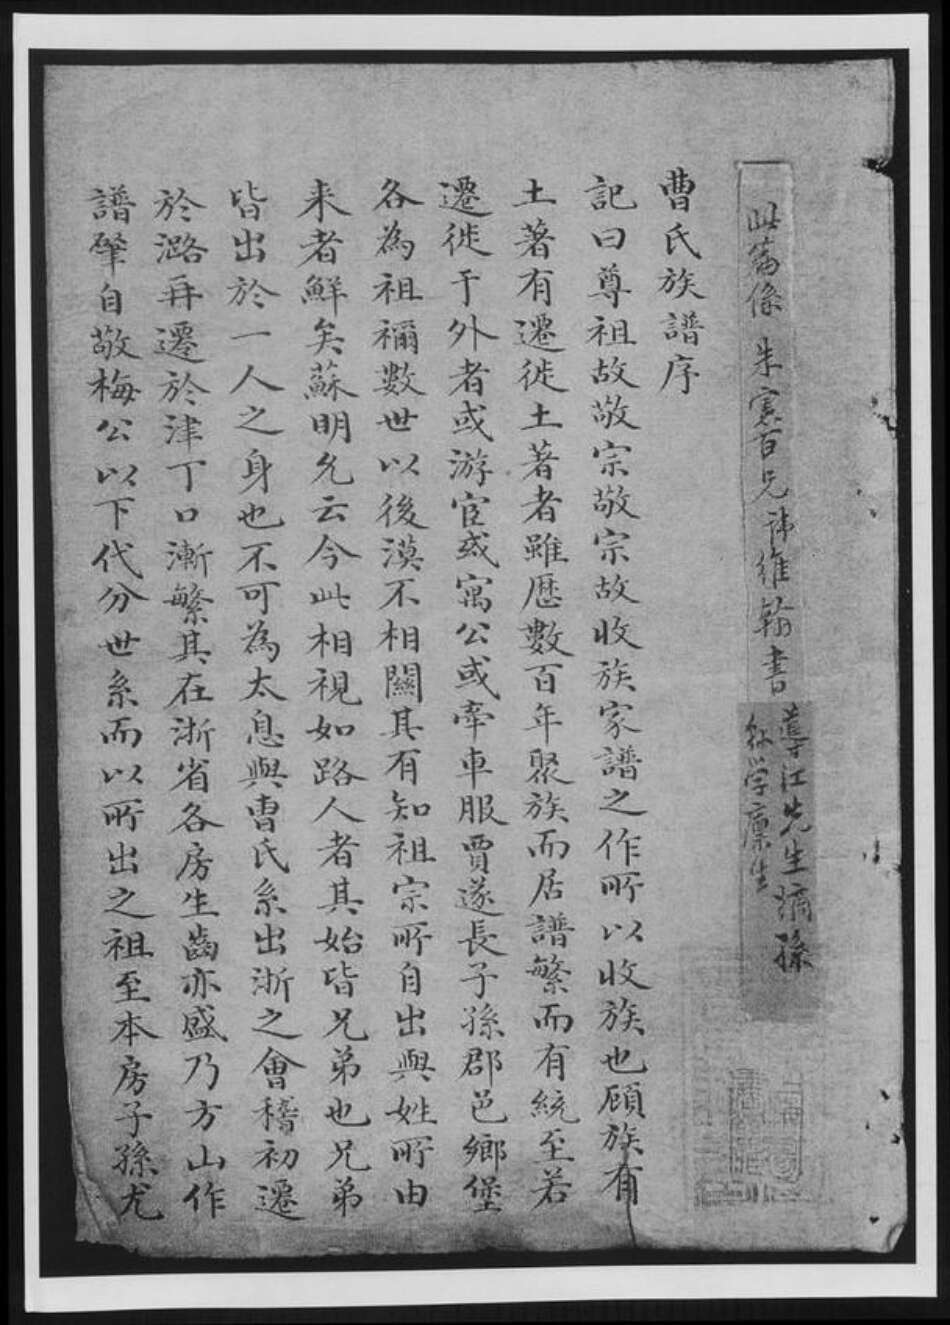 此篇係 朱憲百兄諱維翰書
導江先生嫡孫
縣学廩生
曹氏族譜序
記曰尊祖故敬宗敬宗故收族家譜之作所以收族也顧族有
土著有遷徙土著者雖歷數百年聚族而居譜繁而有統至若
遷徙于外者或游宦或寓公或牽車服賈遂長子孫郡邑鄉堡
各為祖禰數世以後漠不相關其有知祖宗所自出與姓所由
来者鮮矣蘇明允云今此相視如路人者其始皆兄弟也兄弟
皆出於一人之身也不可為太息與曹氏系出浙之會稽初遷
於潞再遷於津丁口漸繁其在浙省各房生齒亦盛乃方山作
譜肈自敬梅公以下代分世系而以所出之祖至本房子孫尤